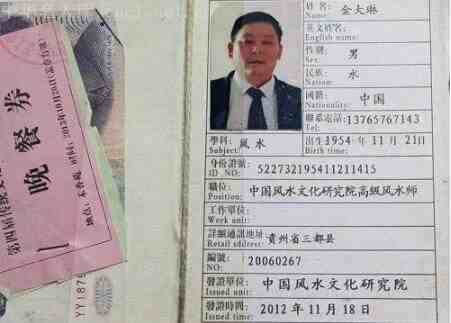 晚餐券
第四届传统文
YY1875
姓名: 金大琳
Name:
英文姓名:
English name:
性别: 男
Sex:
民族: 水
Nation:
國籍: 中国
Nationality:
聯系電話: 13765767143
Tel:
學科: 風水
Subject:
出生: 1954 年 11 月 21日
Birth time:
身份證號:
ID NO: 522732195411211415
職位: 中国風水文化研究院高级風水師
Position:
工作單位:
Work unit:
詳細通訊地址: 貴州省三都县
Retail address:
編號:
NO: 20060267
發證單位: 中国風水文化研究院
Issued unit:
發證時間: 2012 年 11 月 18日
Issued time: